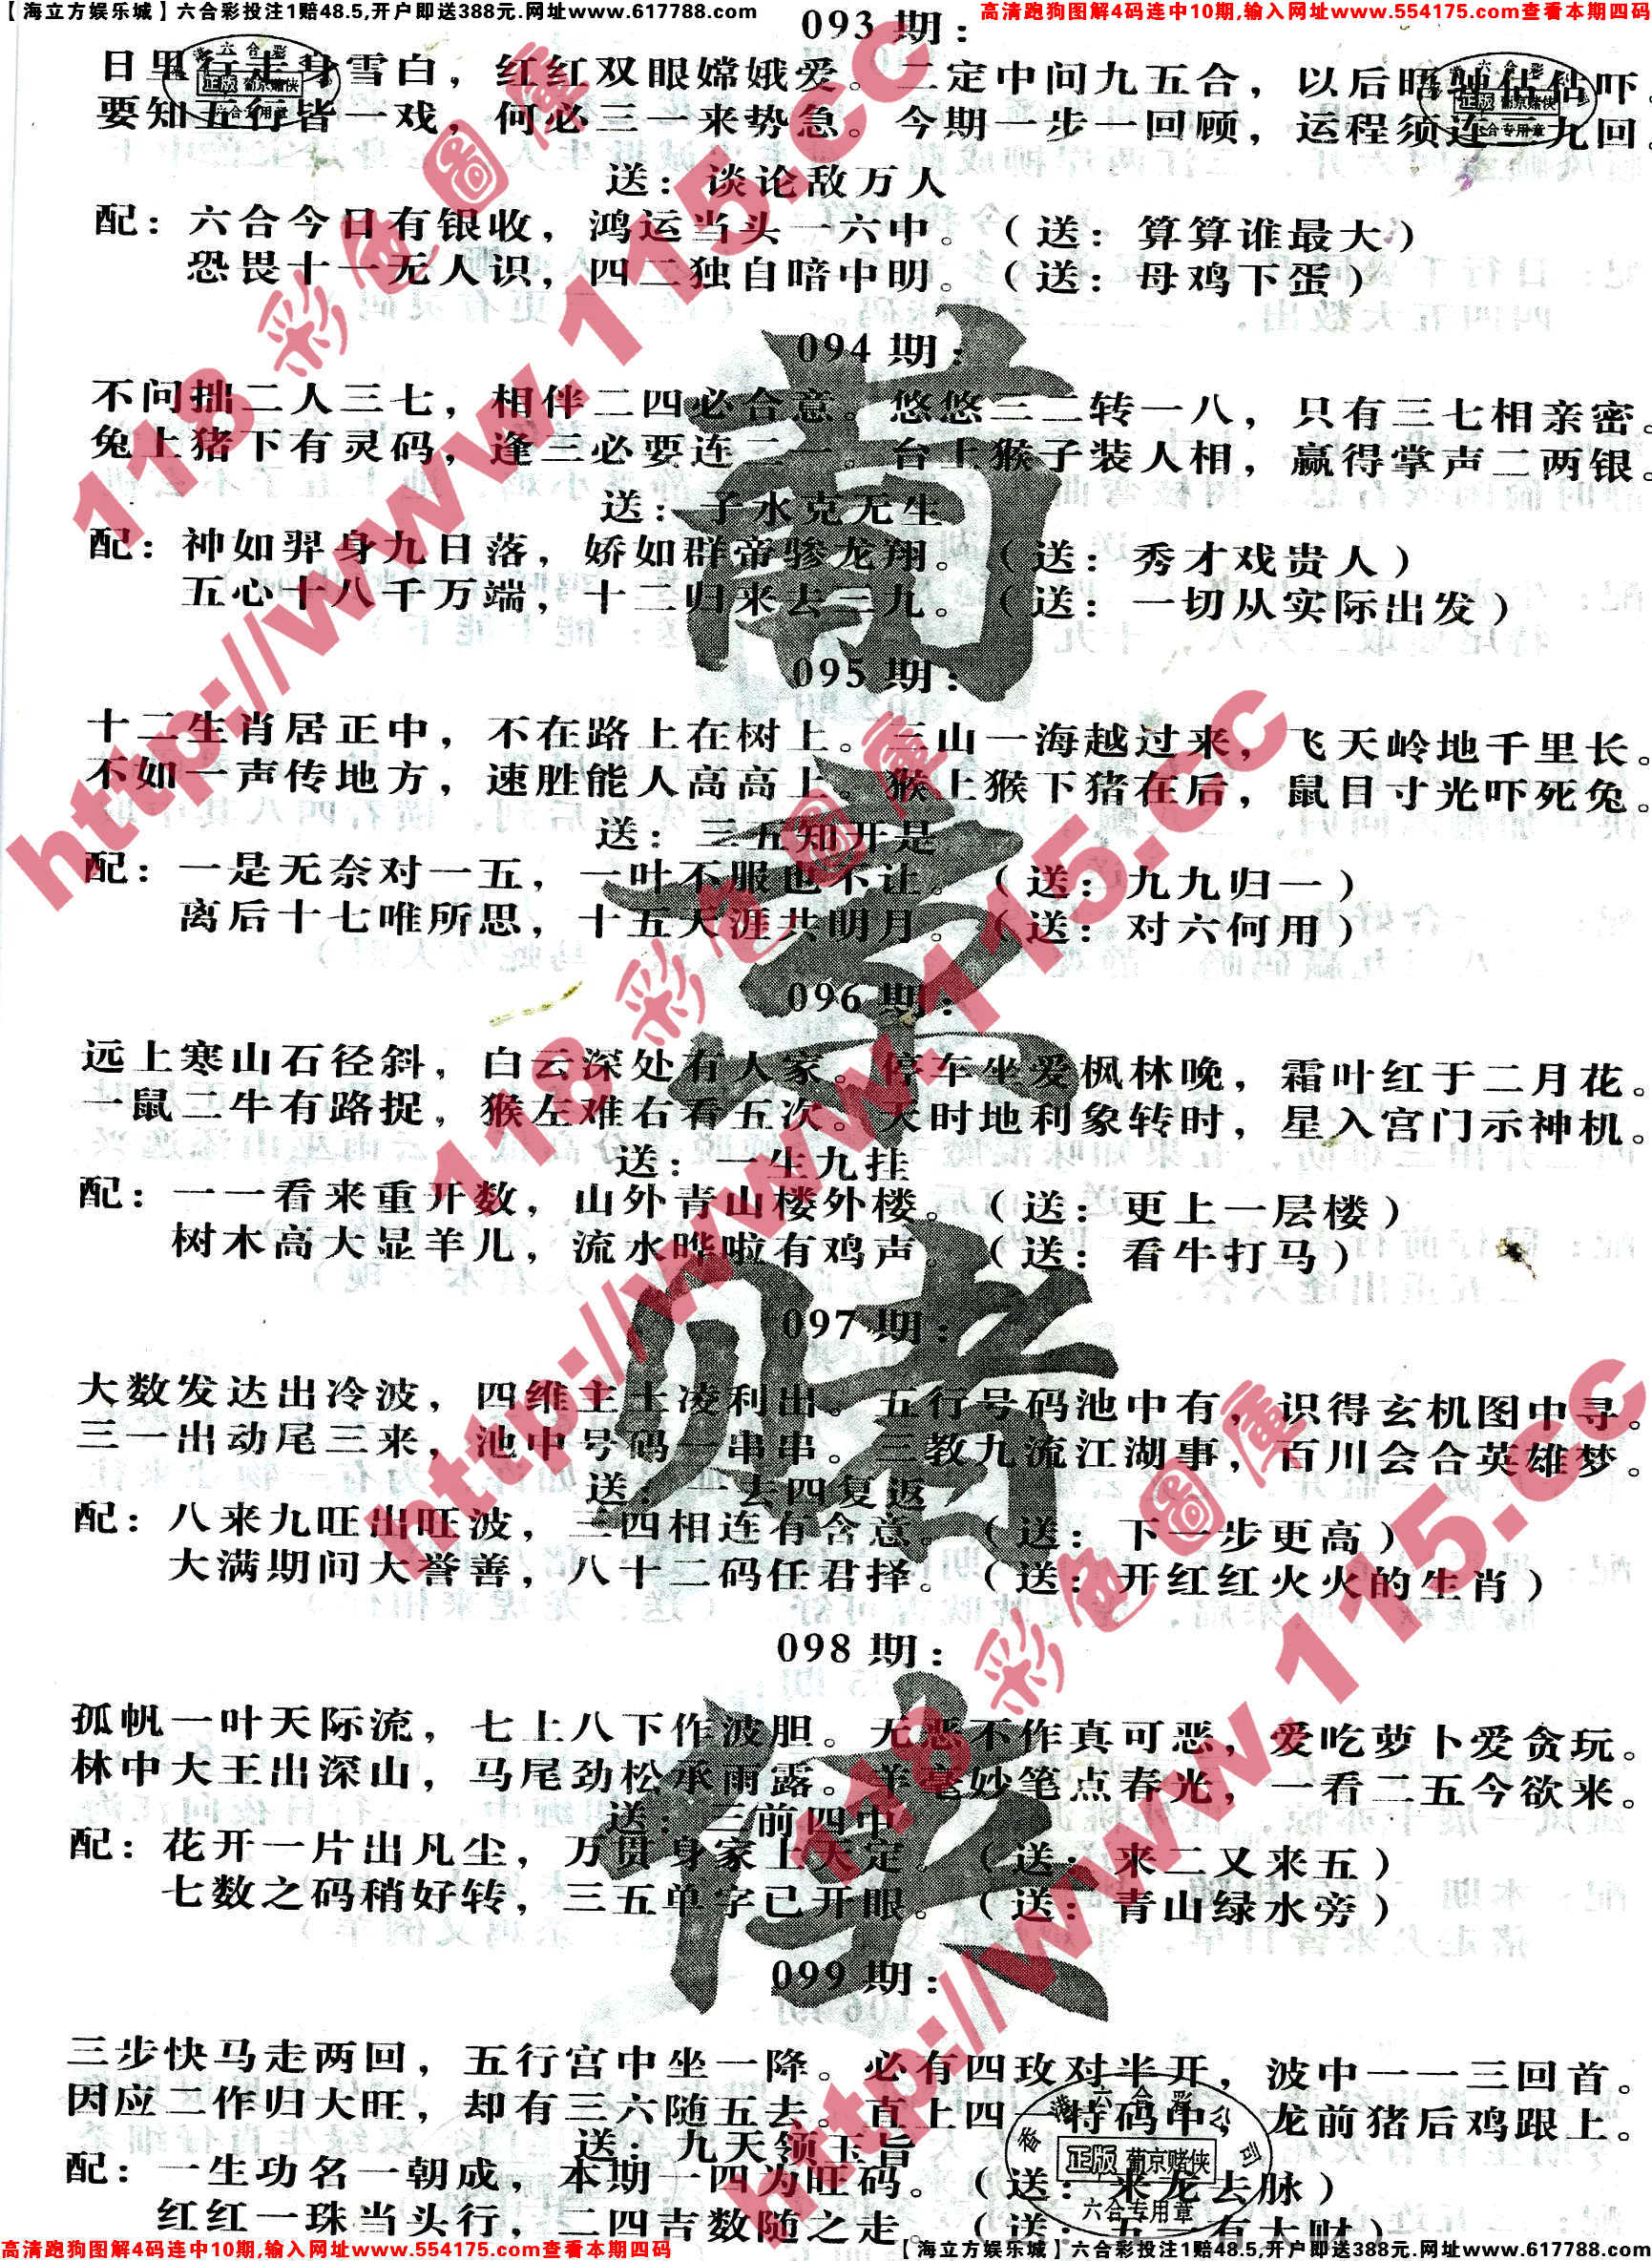 【海立方娱乐城】六合彩投注1赔48.5,开户即送388元.网址www.617788.com
高清跑狗图解4码连中10期,输入网址www.554175.com查看本期四码
093期：
日里行走身雪白，红红双眼嫦娥爱。二定中问九五合，以后唔 估估吓。
要知五行皆一戏，何必三一来势急。今期一步一回顾，运程须连二九回。
送：谈论敌万人
配：六合今日有银收，鸿运当头一六中。（送：算算谁最大）
恐畏十一无人识，四二独自暗中明。（送：母鸡下蛋）
094期：
不问拙二人三七，相伴二四必合意。悠悠三二转一八，只有三七相亲密。
兔上猪下有灵码，逢三必要连二一。台上猴子装人相，赢得掌声二两银。
送：子水克无生
配：神如羿身九日落，娇如群帝骖龙翔。（送：秀才戏贵人）
五心十八千万端，十二归来去三九。（送：一切从实际出发）
095期：
十二生肖居正中，不在路上在树上。三山一海越过来，飞天岭地千里长。
不如一声传地方，速胜能人高高上。猴上猴下猪在后，鼠目寸光吓死兔。
送：三五知开是
配：一是无奈对一五，一叶不服也不让。（送：九九归一）
离后十七唯所思，十五天涯共明月。（送：对六何用）
096期：
远上寒山石径斜，白云深处有人家。停车坐爱枫林晚，霜叶红于二月花。
一鼠二牛有路捉，猴左难右看五次。天时地利象转时，星入宫门示神机。
送：一生九挂
配：一一看来重开数，山外青山楼外楼。（送：更上一层楼）
树木高大显羊儿，流水哗啦有鸡声。（送：看牛打马）
097期：
大数发达出冷波，四维主土凌利出。五行号码池中有，识得玄机图中寻。
三一出动尾三来，池中号码一串串。三教九流江湖事，百川会合英雄梦。
送：一去四复返
配：八来九旺出旺波，三四相连有含意。（送：下一步更高）
大满期问大誉善，八十二码任君择。（送：开红红火火的生肖）
098期：
孤帆一叶天际流，七上八下作波胆。无恶不作真可恶，爱吃萝卜爱贪玩。
林中大王出深山，马尾劲松承雨露。羊毫妙笔点春光，一看二五今欲来。
送：三前四中
配：花开一片出凡尘，万贯身家上天定。（送：来二又来五）
七数之码稍好转，三五单字已开眼。（送：青山绿水旁）
099期：
三步快马走两回，五行宫中坐一降。必有四玫对半开，波中一一三回首。
因应二作归大旺，却有三六随五去。直上四一特码中，龙前猪后鸡跟上。
送：九天领玉旨
配：一生功名一朝成，本期一四为旺码。（送：来龙去脉）
红红一珠当头行，二四吉数随之走。（送：五一有大财）
高清跑狗图解4码连中10期,输入网址www.554175.com查看本期四码
【海立方娱乐城】六合彩投注1赔48.5,开户即送388元.网址www.617788.com
香港六合彩公司
正版 葡京赌侠
六合专用章
118 彩色圖庫
http://www.115.cc
118 彩色圖庫
http://www.115.cc
118 彩色圖庫
http://www.115.cc